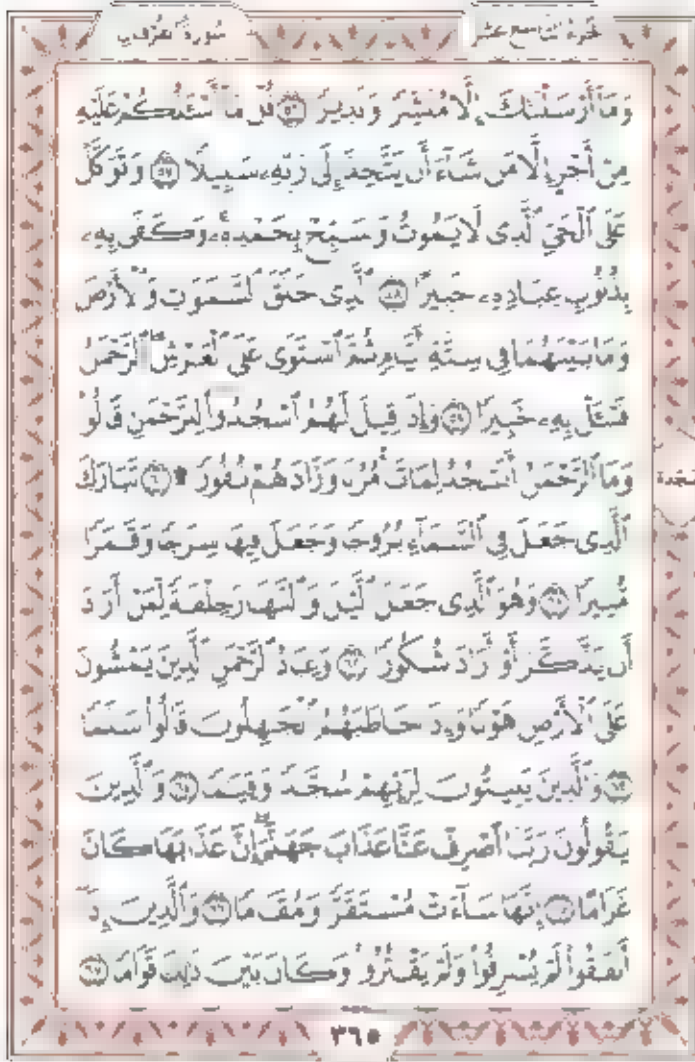 سُورَةُ الفُرْقَانِ
الجزء التاسع عشر
وَمَآ أَرْسَلْنَٰكَ إِلَّا مُبَشِّرًا وَنَذِيرًا ٥٦ قُلْ مَآ أَسْـَٔلُكُمْ عَلَيْهِ
مِنْ أَجْرٍ إِلَّا مَن شَآءَ أَن يَتَّخِذَ إِلَىٰ رَبِّهِۦ سَبِيلًا ٥٧ وَتَوَكَّلْ
عَلَى ٱلْحَىِّ ٱلَّذِى لَا يَمُوتُ وَسَبِّحْ بِحَمْدِهِۦ ۚ وَكَفَىٰ بِهِۦ
بِذُنُوبِ عِبَادِهِۦ خَبِيرًا ٥٨ ٱلَّذِى خَلَقَ ٱلسَّمَٰوَٰتِ وَٱلْأَرْضَ
وَمَا بَيْنَهُمَا فِى سِتَّةِ أَيَّامٍ ثُمَّ ٱسْتَوَىٰ عَلَى ٱلْعَرْشِ ۚ ٱلرَّحْمَٰنُ
فَسْـَٔلْ بِهِۦ خَبِيرًا ٥٩ وَإِذَا قِيلَ لَهُمُ ٱسْجُدُوا۟ لِلرَّحْمَٰنِ قَالُوا۟
وَمَا ٱلرَّحْمَٰنُ أَنَسْجُدُ لِمَا تَأْمُرُنَا وَزَادَهُمْ نُفُورًا ۩ ٦٠ تَبَارَكَ
سجدة
ٱلَّذِى جَعَلَ فِى ٱلسَّمَآءِ بُرُوجًا وَجَعَلَ فِيهَا سِرَٰجًا وَقَمَرًا
مُّنِيرًا ٦١ وَهُوَ ٱلَّذِى جَعَلَ ٱلَّيْلَ وَٱلنَّهَارَ خِلْفَةً لِّمَنْ أَرَادَ
أَن يَذَّكَّرَ أَوْ أَرَادَ شُكُورًا ٦٢ وَعِبَادُ ٱلرَّحْمَٰنِ ٱلَّذِينَ يَمْشُونَ
عَلَى ٱلْأَرْضِ هَوْنًا وَإِذَا خَاطَبَهُمُ ٱلْجَٰهِلُونَ قَالُوا۟ سَلَٰمًا
٦٣ وَٱلَّذِينَ يَبِيتُونَ لِرَبِّهِمْ سُجَّدًا وَقِيَٰمًا ٦٤ وَٱلَّذِينَ
يَقُولُونَ رَبَّنَا ٱصْرِفْ عَنَّا عَذَابَ جَهَنَّمَ ۖ إِنَّ عَذَابَهَا كَانَ
غَرَامًا ٦٥ إِنَّهَا سَآءَتْ مُسْتَقَرًّا وَمُقَامًا ٦٦ وَٱلَّذِينَ إِذَآ
أَنفَقُوا۟ لَمْ يُسْرِفُوا۟ وَلَمْ يَقْتُرُوا۟ وَكَانَ بَيْنَ ذَٰلِكَ قَوَامًا ٦٧
٣٦٥